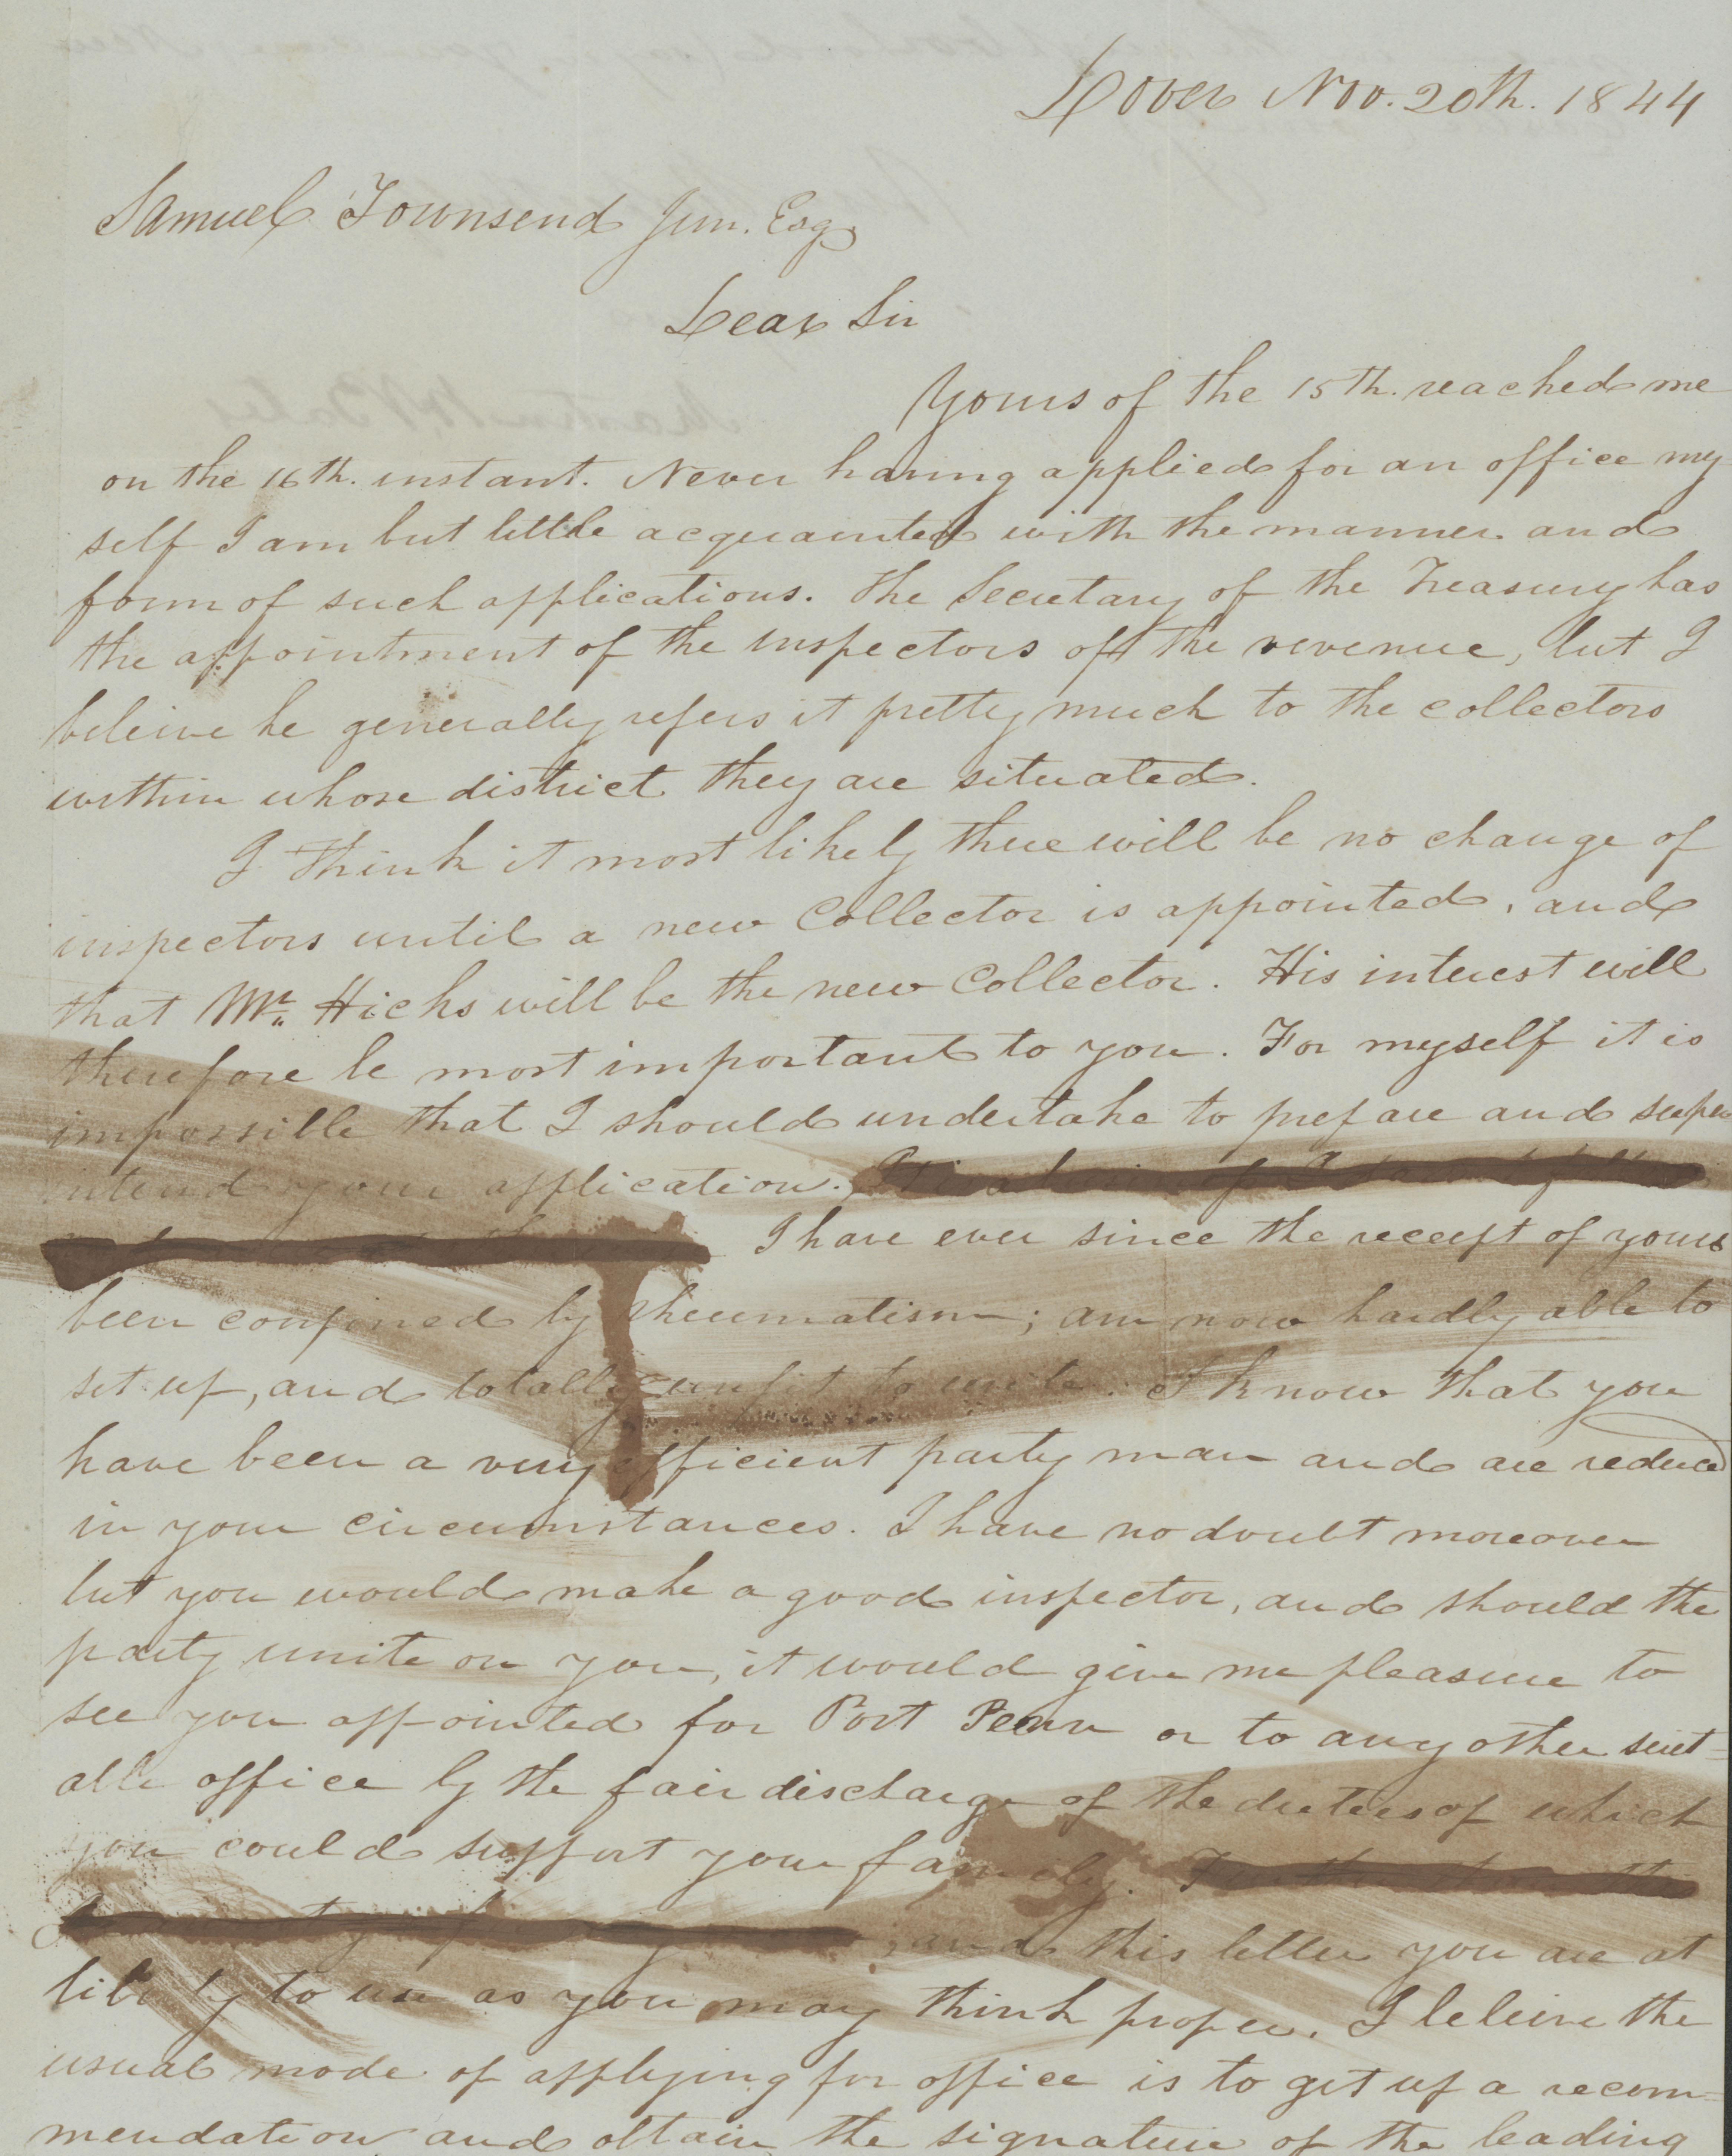 Dover Nov. 20th. 1844
Samuel Townsend Jun. Esq
Dear Sir
Yours of the 15th. reached me
on the 16th. instant. Never having applied for an office my
self I am but little acquainted with the manner and
form of such applications. The Secretary of the Treasury has
the appointment of the inspectors of the revenue, but I
beleive he generally refers it pretty much to the collectors
within whose district they are situated.
I think it most likely there will be no change of
inspectors until a new Collector is appointed, and
that Mr. Hicks will be the new Collector. His interest will
therefore be most important to you. For myself it is
impossible that I should undertake to prepare and super
intend your application.
I have ever since the receipt of yours
been confined by rheumatism; am now hardly able to
set up, and totally unfit to write. I know that you
have been a very efficient party man and are reduced
in your circumstances. I have no doubt moreover
but you would make a good inspector, and should the
party unite on you, it would give me pleasure to
see you appointed for Port Penn or to any other suit=
able office by the fair discharge of the duties of which
you could support your family.
; and this letter you are at
liberty to use as you may think proper. I beleive the
usual mode of applying for office is to get up a recom=
mendation and obtain the signature of the leading